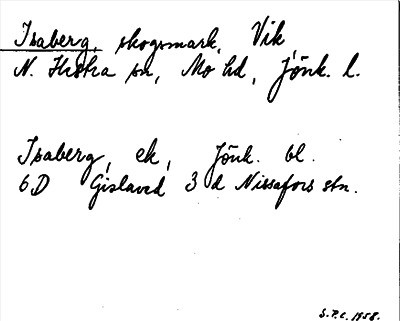 Isaberg, skogsmark, Vik
N. Hestra sn, Mo hd, Jönk. l.
Isaberg, ek, Jönk. bl.
6D Gislaved 3 d Nissafors stn.
S.P.C. 1958.